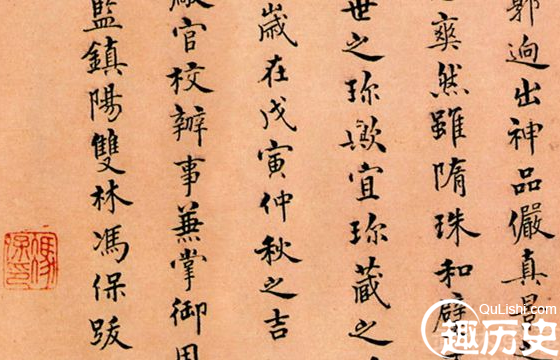 郭迥出神品儼真景
爽然雖隋珠和璧
世之珎歟宜珎藏之
歲在戊寅仲秋之吉
廠官校辦事兼掌御用
監鎮陽雙林馮保跋
QuLishi.com
趣历史